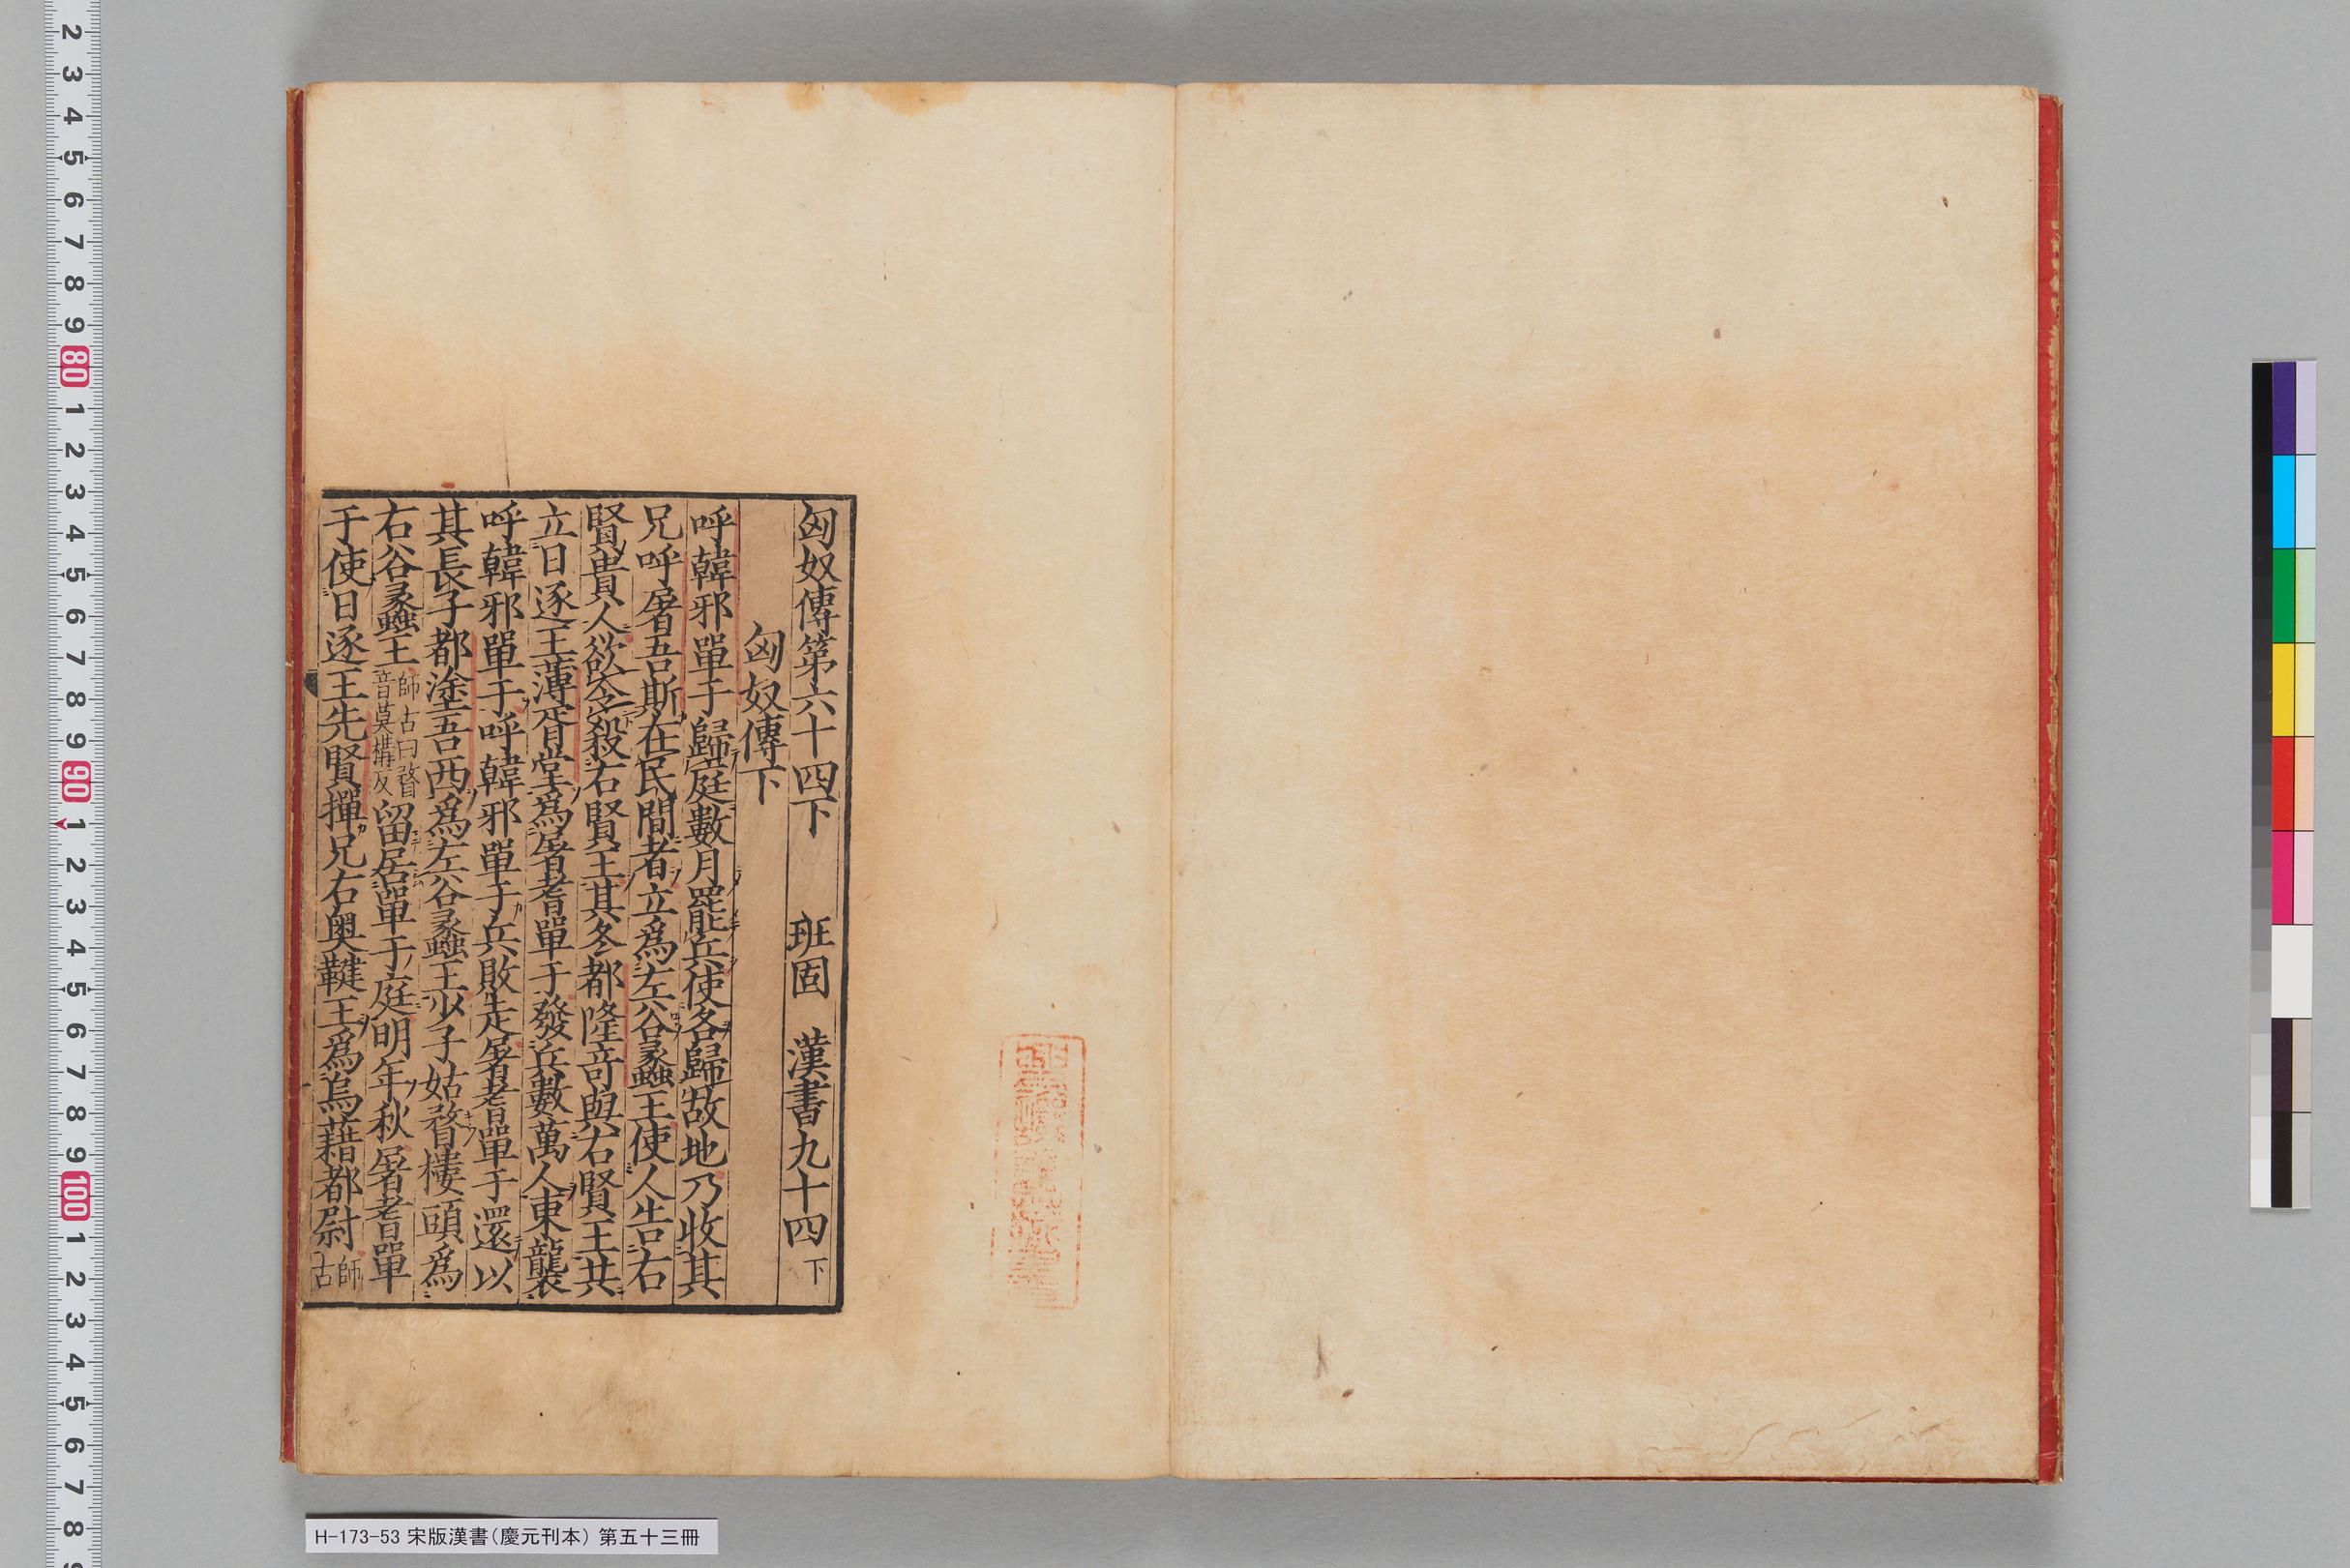 匈奴傳第六十四下 班固 漢書九十四下
匈奴傳下
呼韓邪單于歸庭數月罷兵使各歸故地乃收其
兄呼屠吾斯在民間者立為左谷蠡王使人告右
賢貴人欲令殺右賢王其冬都隆竒與右賢王共
立日逐王薄胥堂為屠耆單于發兵數萬人東襲
呼韓邪單于呼韓邪單于兵敗走屠耆單于還以
其長子都塗吾西為左谷蠡王少子姑瞀樓頭為
右谷蠡王師古曰瞀音莫構反留居單于庭明年秋屠耆單
于使日逐王先賢撣兄右奥鞬王為烏藉都尉師古
H-173-53 宋版漢書（慶元刊本） 第五十三冊
2
3
4
5
6
7
8
9
80
1
2
3
4
5
6
7
8
9
90
1
2
3
4
5
6
7
8
9
100
1
2
3
4
5
6
7
8